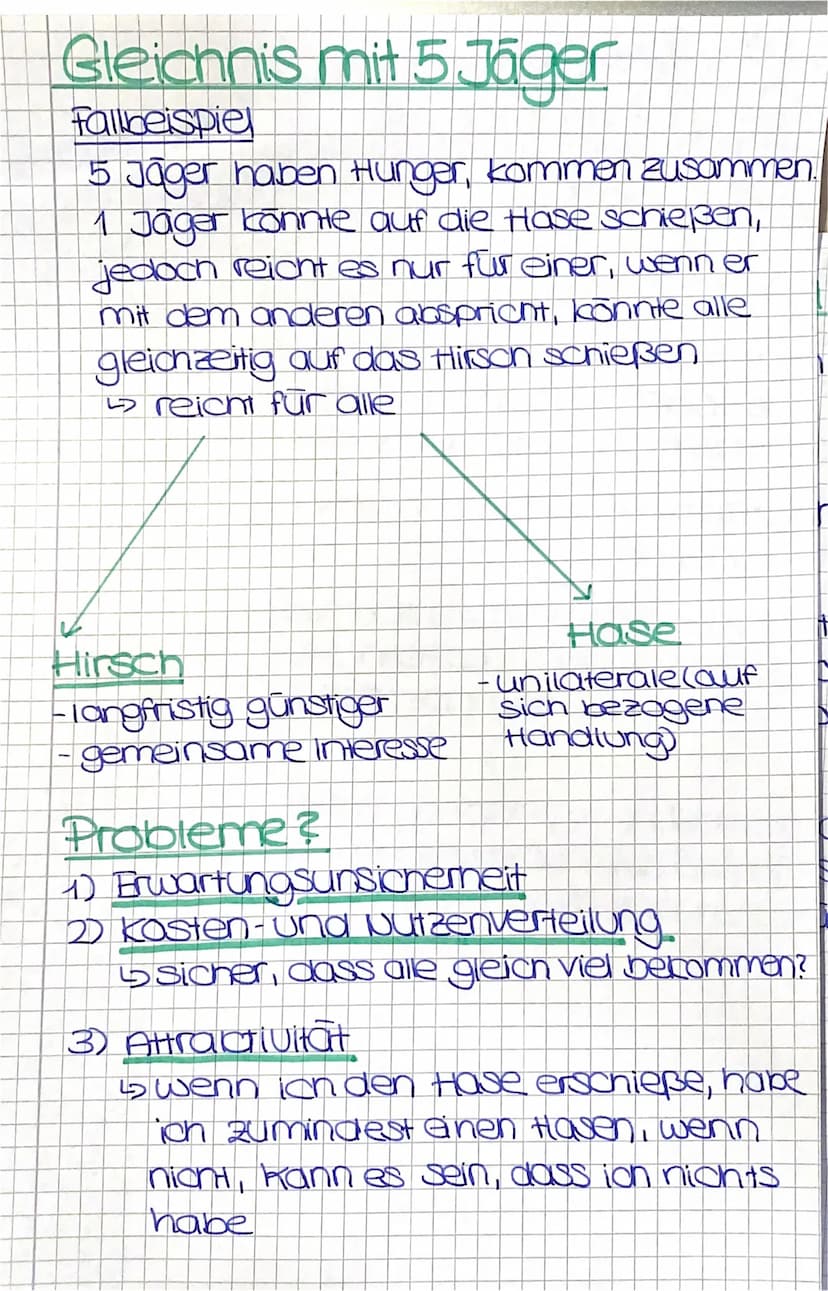 Gleichnis mit 5 Jäger
Fallbeispiel
5 Jäger haben Hunger, kommen zusammen.
1 Jäger könnte auf die Hase schießen,
jedoch reicht es nur für einer, wenn er
mit dem anderen abspricht, könnte alle
gleichzeitig auf das Hirsch schießen
↳ reicht für alle
Hirsch
- langfristig günstiger
- gemeinsame Interesse
Hase
- unilaterale (auf
sich bezogene
Handlung)
Probleme?
1) Erwartungsunsicherheit
2) Kosten- und Nutzenverteilung
↳ sicher, dass alle gleich viel bekommen?
3) Attractivität
↳ wenn ich den Hase erschieße, habe
ich zumindest einen Hasen, wenn
nicht, kann es sein, dass ich nichts
habe